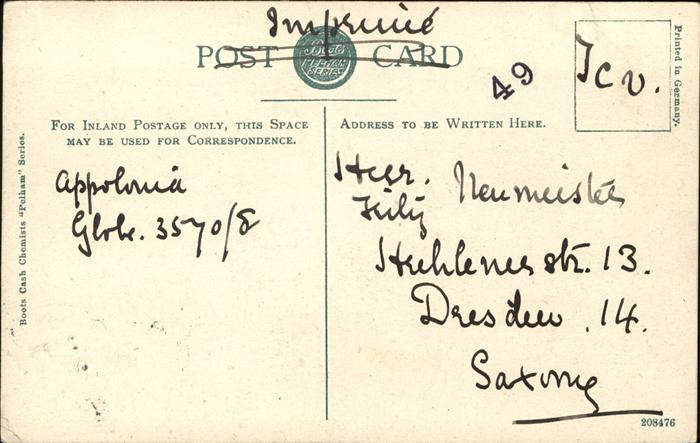 Imprimé
POST CARD
Boots
PELHAM
SERIES
49
T.C.V.
Printed in Germany.
Boots Cash Chemists "Pelham" Series.
FOR INLAND POSTAGE ONLY, THIS SPACE
MAY BE USED FOR CORRESPONDENCE.
Appolonia
Globe. 3570/8
ADDRESS TO BE WRITTEN HERE.
Herr. Neumeister
Felix
str. 13.
Dresden .14.
Saxony
208476